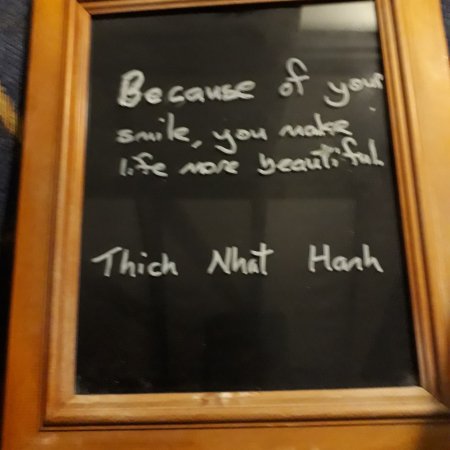 Because of your
smile, you make
life more beautiful
Thich Nhat Hanh